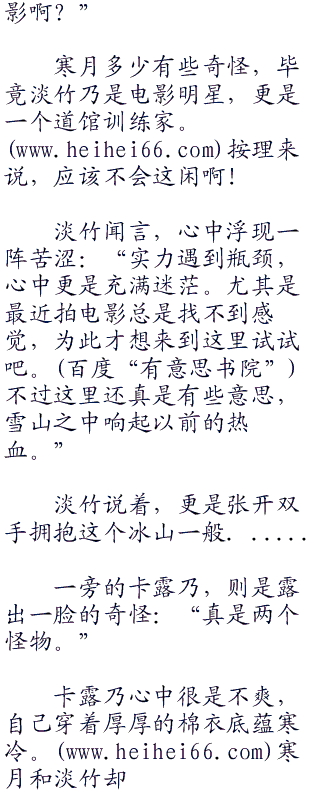 影啊？”
寒月多少有些奇怪，毕
竟淡竹乃是电影明星，更是
一个道馆训练家。
(www.heihei66.com)按理来
说，应该不会这闲啊！
淡竹闻言，心中浮现一
阵苦涩：“实力遇到瓶颈，
心中更是充满迷茫。尤其是
最近拍电影总是找不到感
觉，为此才想来到这里试试
吧。(百度“有意思书院”)
不过这里还真是有些意思，
雪山之中响起以前的热
血。”
淡竹说着，更是张开双
手拥抱这个冰山一般．．．．．．
一旁的卡露乃，则是露
出一脸的奇怪：“真是两个
怪物。”
卡露乃心中很是不爽，
自己穿着厚厚的棉衣底蕴寒
冷。(www.heihei66.com)寒
月和淡竹却